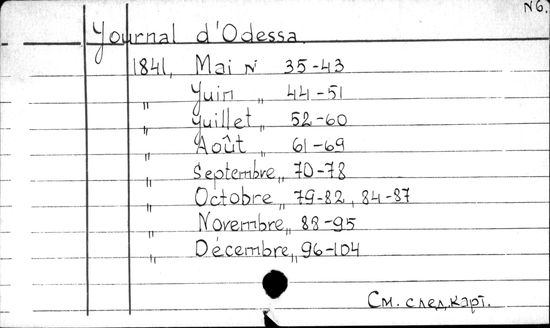 N6.
Journal d'Odessa
1841, Mai N 35-43
" Juin " 44-51
" Juillet " 52-60
" Août " 61-69
" Septembre " 70-78
" Octobre " 79-82, 84-87
" Novembre " 88-95
" Décembre " 96-104
См. след. карт.